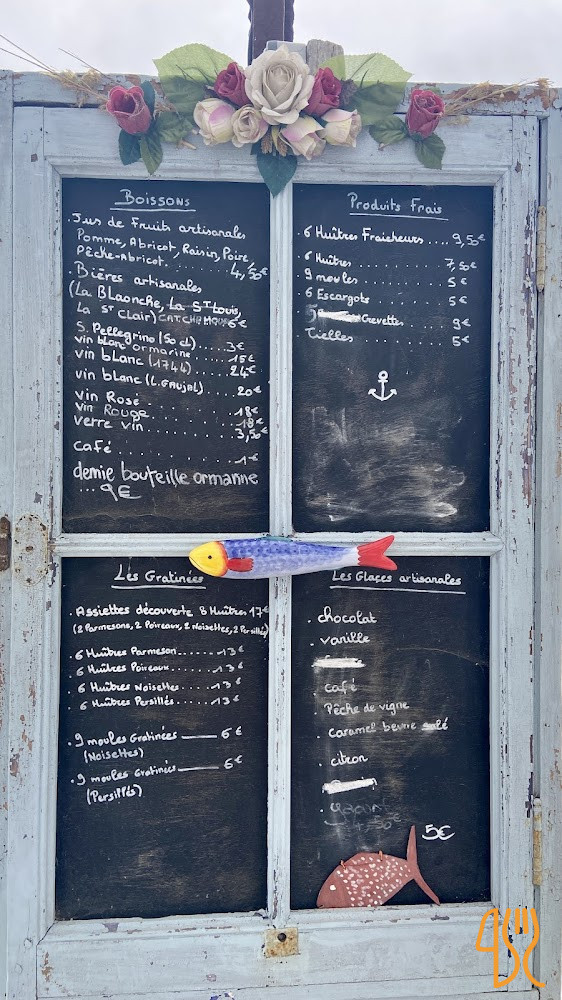 Boissons
. Jus de Fruits artisanales
Pomme, Abricot, Raisin, Poire,
Pêche-Abricot. ......... 4,50€
. Bières artisanales
(La Blaonche, La St Louis,
La St Clair) CATCHAMQUE 6€
S. Pellegrino (50 cl) ..... 3€
vin blanc ormarine ..... 15€
vin blanc (1744) ..... 24€
vin blanc (L. GAUJAL) ..... 20€
vin Rosé ......... 18€
vin Rouge ......... 18€
verre vin ......... 3,50€
café ......... 1€
demie bouteille ormarine
... 9€
Produits Frais
. 6 Huîtres Fraicheurs .... 9,50€
. 6 Huîtres ......... 7,50€
. 9 moules ......... 5€
. 6 Escargots ......... 5€
. Crevettes ......... 9€
. Tielles ......... 5€
Les Gratinées
. Assiettes découverte 8 Huîtres 17€
(2 Parmesans, 2 Poireaux, 2 Noisettes, 2 Persillés)
. 6 Huîtres Parmesan ...... 13€
. 6 Huîtres Poireaux ...... 13€
. 6 Huîtres Noisettes ...... 13€
. 6 Huîtres Persillés ...... 13€
. 9 moules Gratinées — 6€
(Noisettes)
. 9 moules Gratinées — 6€
(Persillés)
Les Glaçes artisanales
. chocolat
. vanille
. café
. Pêche de vigne
. caramel beurre salé
. citron
5€